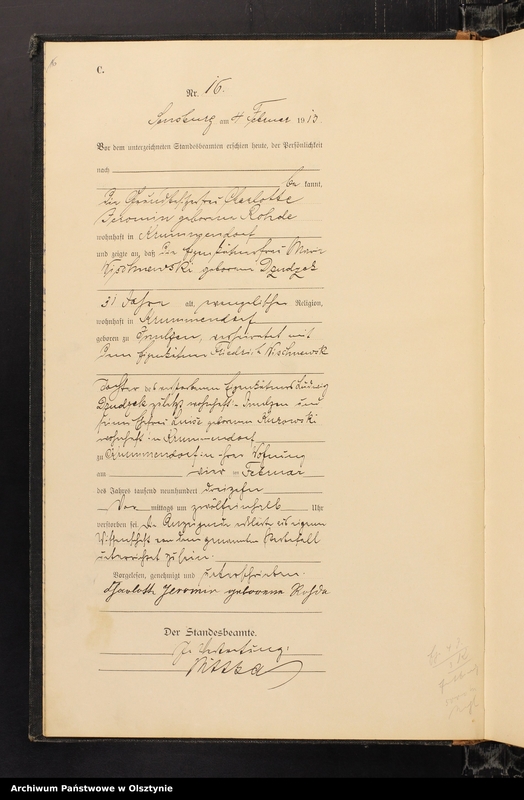 C.
Nr. 16.
Sensburg am 4 Februar 1913.
Vor dem unterzeichneten Standesbeamten erschien heute, der Persönlichkeit
nach
be kannt,
die Grundbesitzerfrau Charlotte
Jeromin geborene Rohde
wohnhaft in Krummendorf
und zeigte an, daß die Eigenkätnerfrau
geborene Dzudzek
31 Jahre alt, evangelischer Religion,
wohnhaft in Krummendorf
geboren zu verheiratet mit
dem Eigenkätner Friedrich
Tochter des verstorbenen Eigenkätners Ludwig
Dzudzek zuletzt wohnhaft in und
seiner Ehefrau Luise geborenen
wohnhaft in Krummendorf
zu Krummendorf in ihrer Wohnung
am vier ten Februar
des Jahres tausend neunhundert dreizehn
Vor mittags um zwölfeinhalb Uhr
verstorben sei. Die Anzeigende erklärte aus eigener
Wissenschaft von dem genannten Sterbefall
unterrichtet zu sein.
Vorgelesen, genehmigt und unterschrieben.
Charlotte Jeromin geborene Rohde
Der Standesbeamte.
In Vertretung:
Archiwum Państwowe w Olsztynie